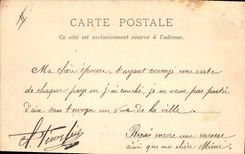 CARTE POSTALE
Ce côté est exclusivement réservé à l'adresse.
Ma chère épouse, t'ayant envoyé une carte
de chaque pays où j'ai couché, je ne veux pas partir
d'ici sans t'envoyer un vue de la ville.
Reçois encore une caresse
ainsi que ma chère